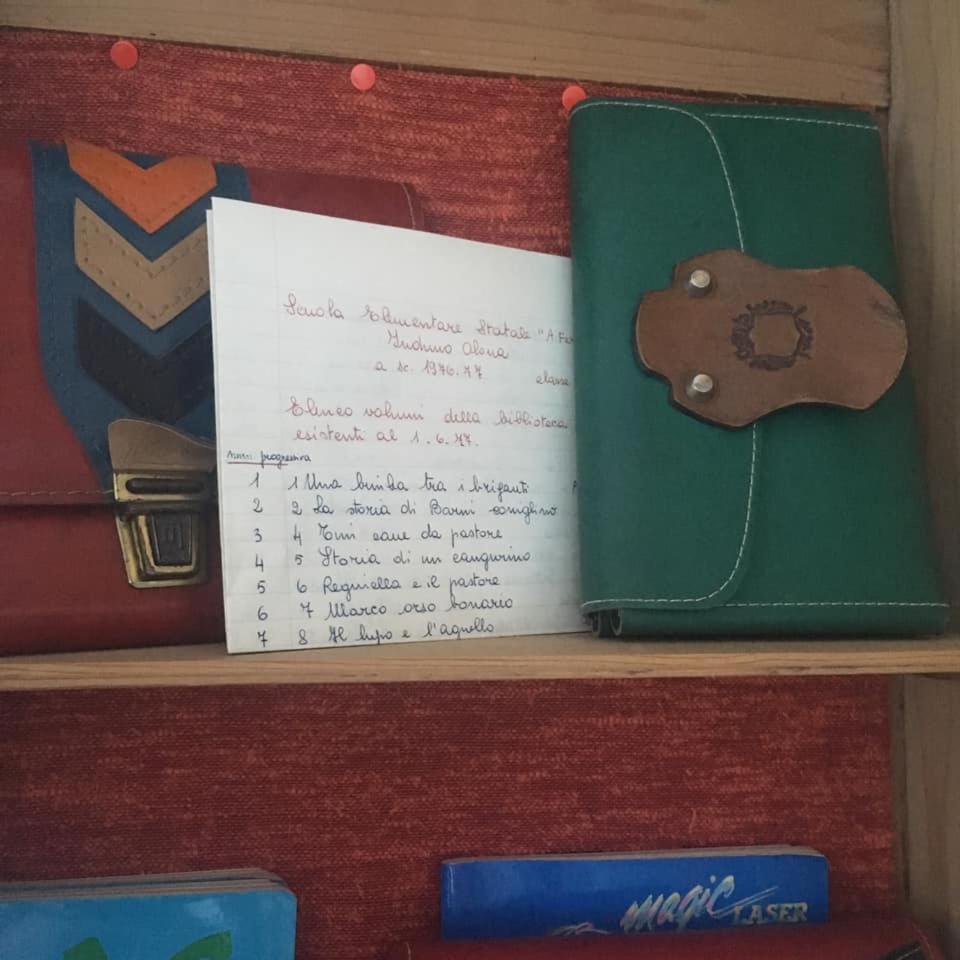 Scuola Elementare Statale "A. Fe
Induno Olona
a. sc. 1976.77
classe
Elenco volumi della biblioteca
esistenti al 1.6.77.
Num. progressivo
1 1 Una bimba tra i briganti
2 2 La storia di Barni coniglino
3 4 Tini cane da pastore
4 5 Storia di un cangurino
5 6 Reginella e il pastore
6 7 Marco orso bonario
7 8 Il lupo e l'agnello
magic
LASER